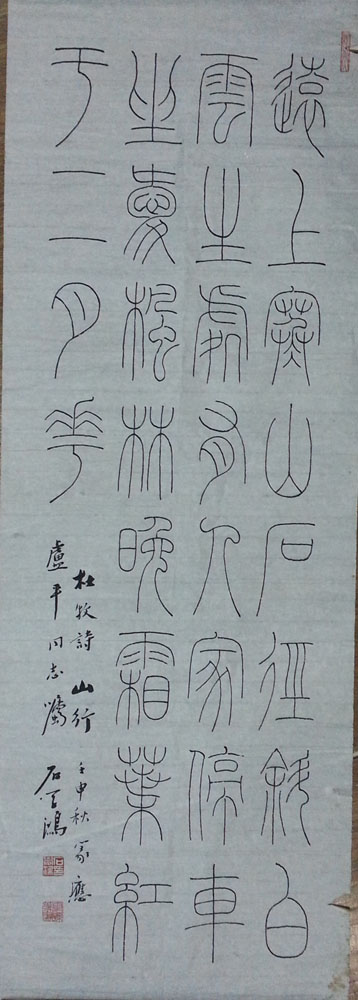 遠上寒山石徑斜白
雲生處有人家停車
坐愛楓林晚霜葉紅
于二月花
杜牧詩山行 壬申秋篆應
盧平同志囑 石天鴻